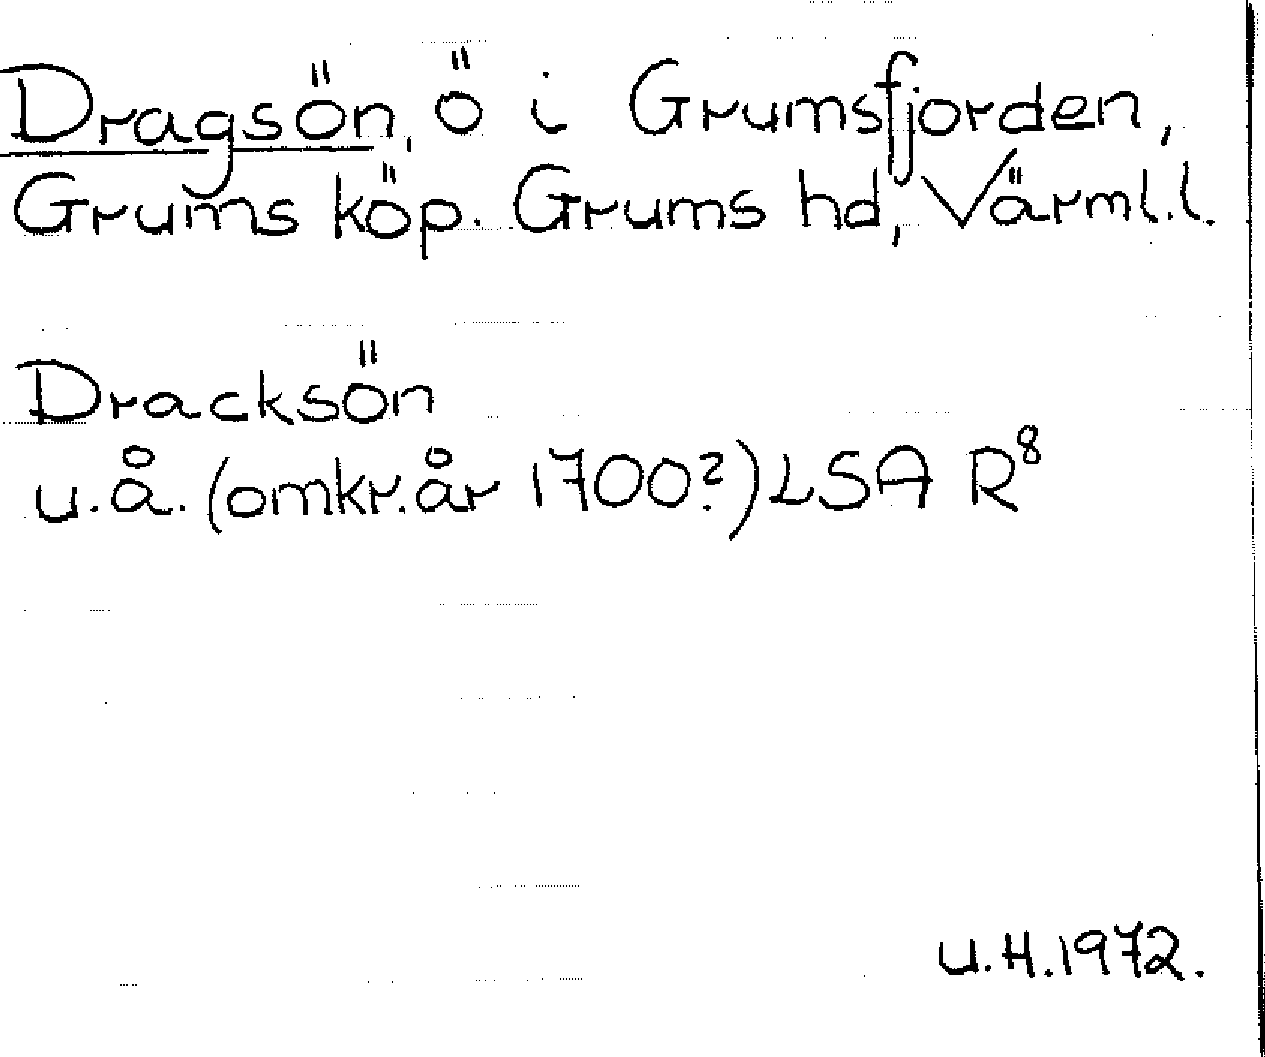 Dragsön, ö i Grumsfjorden,
Grums köp. Grums hd, Värml.l.
Dracksön
u.å. (omkr. år 1700?) LSA R⁸
U.H.1972.